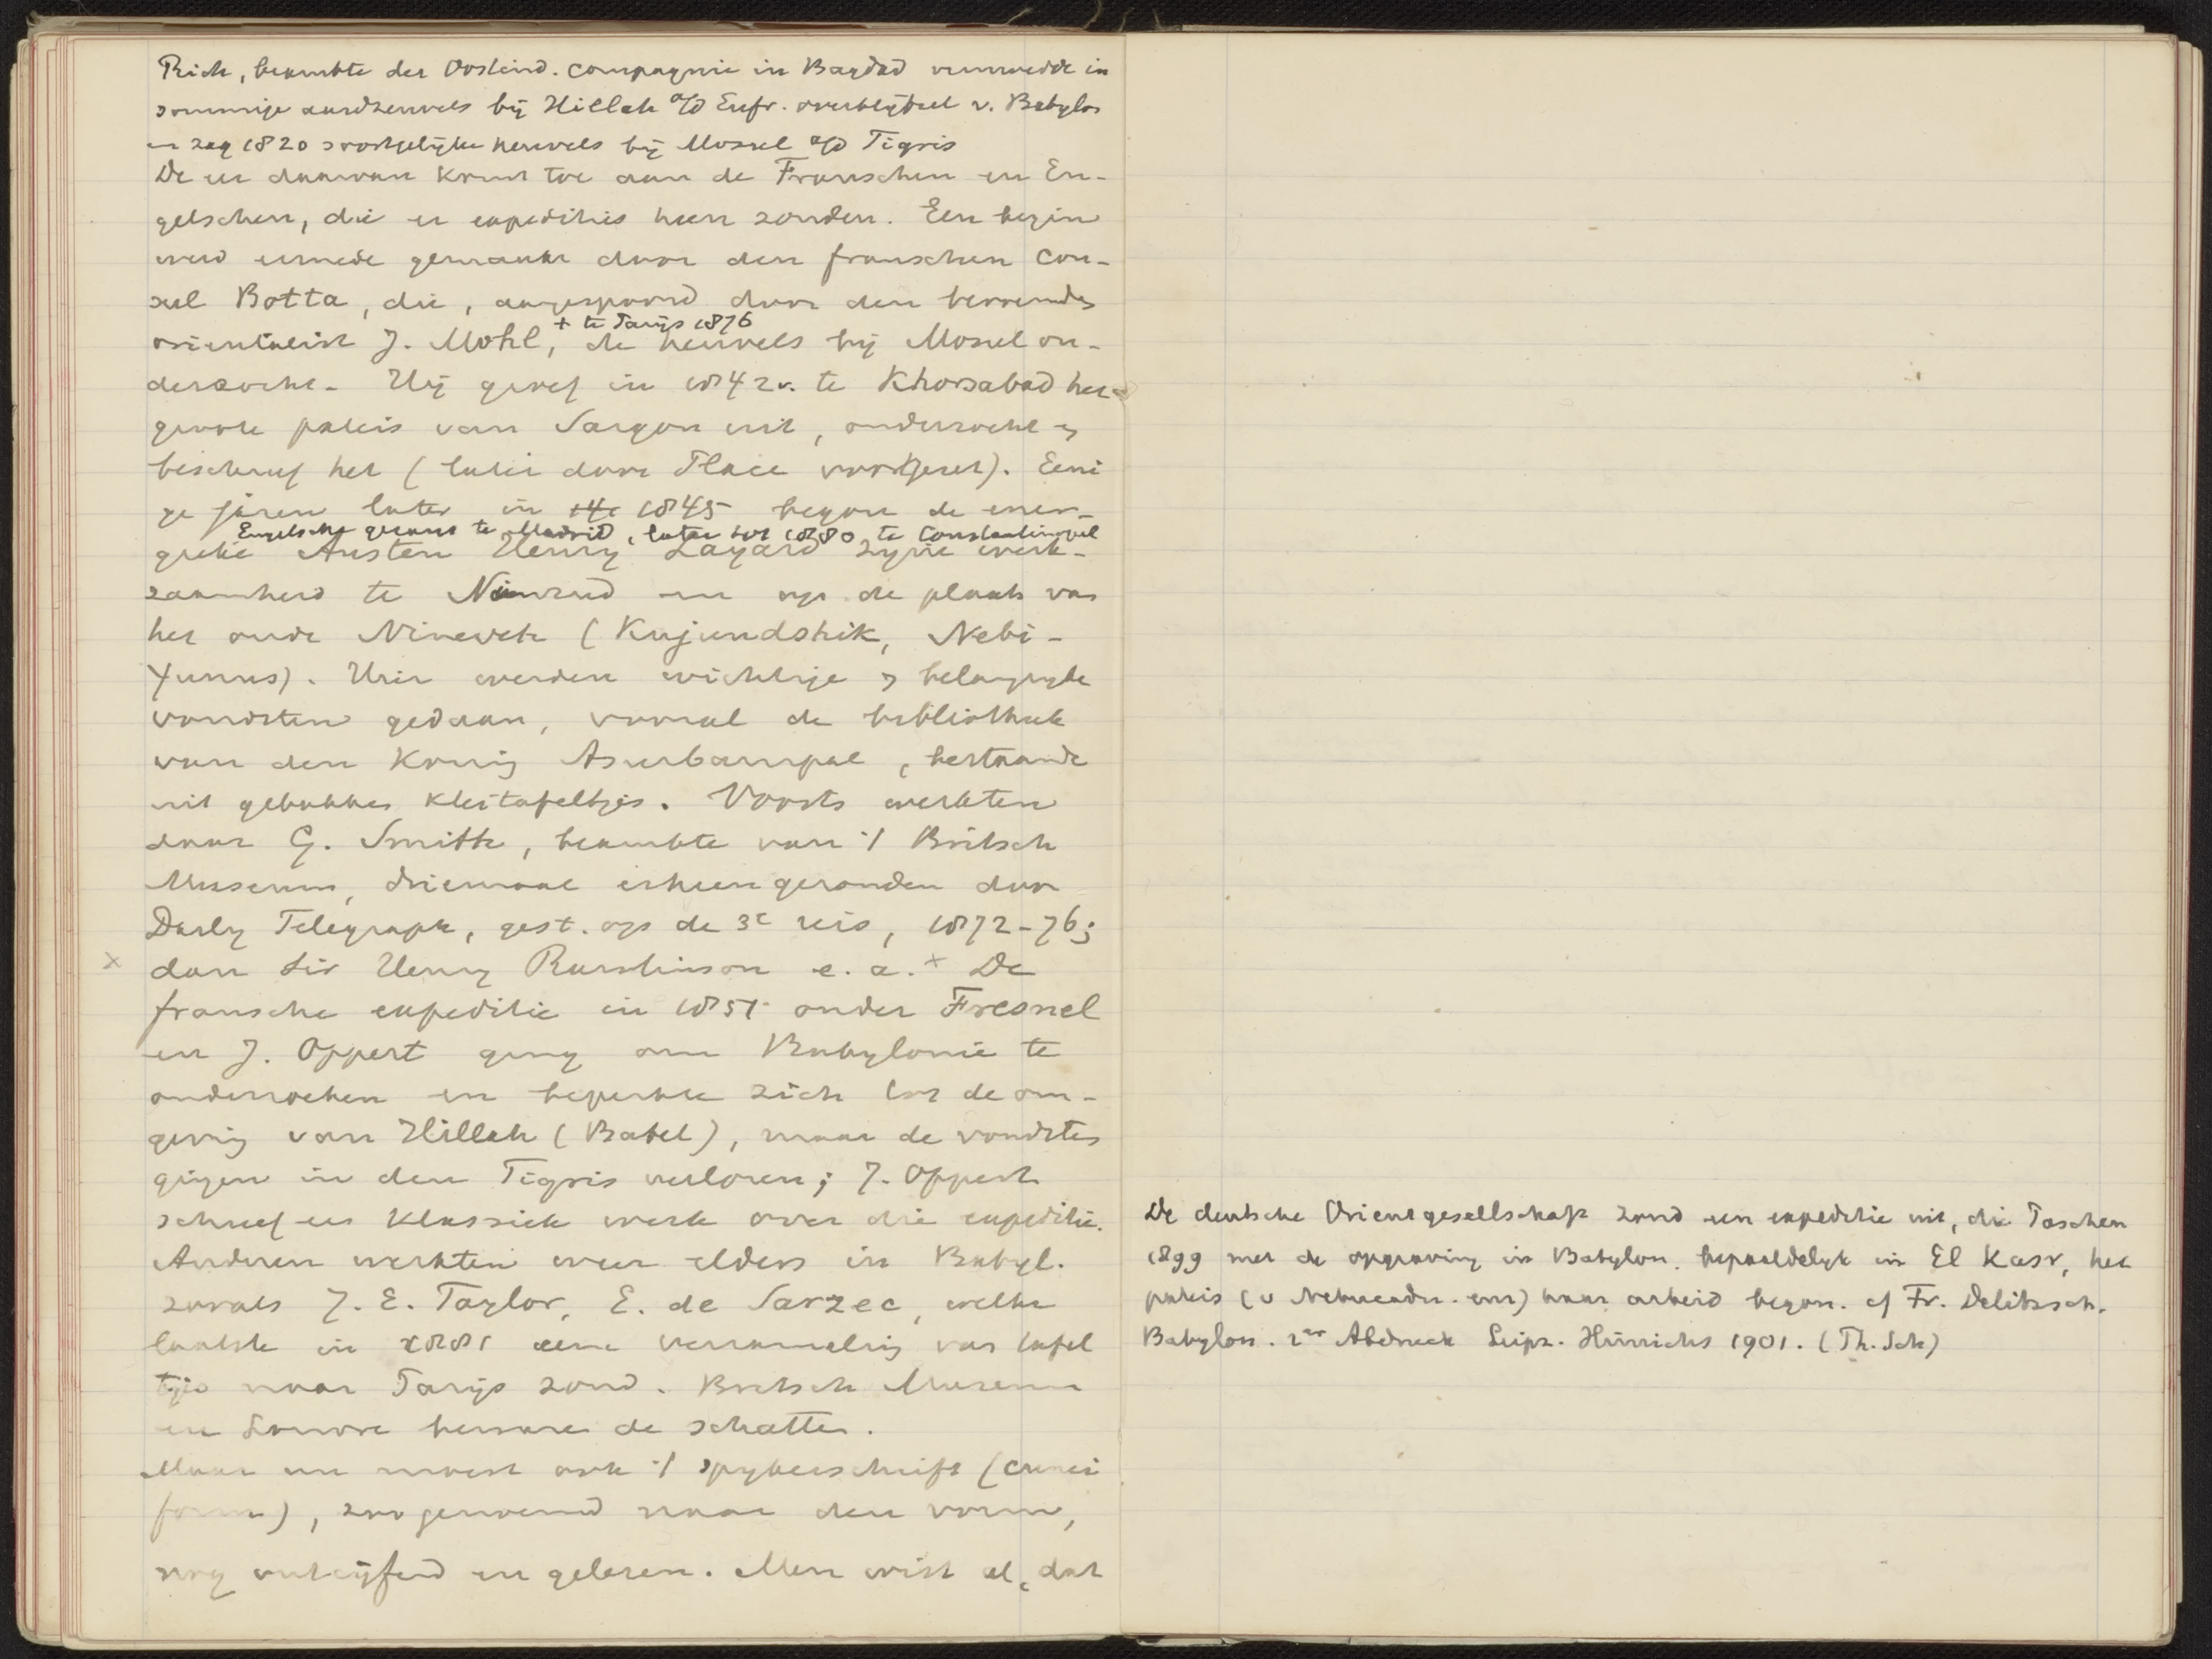 Rich, beambte der Oostind. Compagnie in Bagdad vermoedde in
sommige aardheuvels bij Hillah a/d Eufr. overblijfsel v. Babylon
en zag 1820 soortgelijke heuvels bij Mosul a/d Tigris
De eer daarvan komt toe aan de Franschen en En-
gelschen, die er expedities heen zonden. Een begin
werd ermede gemaakt door den franschen Con-
sul Botta, die, aangespoord door den beroemden
+ te Parijs 1876
orientalist J. Mohl, de heuvels bij Mosul on-
derzocht. Hij groef in 1842 v. te Khorsabad het
groote paleis van Sargon uit, onderzocht en
beschreef het (later door Place voortgezet). Eeni
ge jaren later in 1845 begon de ener-
Engelsche gezant te Madrid, later tot 1880 te Constantinopel
gieke Austen Henry Layard zijne werk-
zaamheid te Nimrud en op de plaats van
het oude Nineveh (Kujundshik, Nebi-
Yunus). Hier werden wichtige en belangrijke
vondsten gedaan, vooral de bibliotheek
van den Koning Asurbanipal, bestaande
uit gebakken kleitafeltjes. Voorts werkten
daar G. Smith, beambte van 't Britsch
Museum, driemaal erheen gezonden door
Daily Telegraph, gest. op de 3e reis, 1872-76;
x dan Sir Henry Rawlinson e. a. x De
fransche expeditie in 1851 onder Fresnel
en J. Oppert ging om Babylonie te
onderzoeken en beperkte zich tot de om-
geving van Hillah (Babel), maar de vondsten
gingen in den Tigris verloren; J. Oppert
schreef een klassiek werk over die expeditie.
Anderen werkten weer elders in Babyl.
zooals J. E. Taylor, E. de Sarzec, welke
laatste in 1881 eene verzameling van tafel
tjes naar Parijs zond. Britsch Museum
en Louvre bewaren de schatten.
Maar nu moest ook 't spijkerschrift (cunei
form), zoo genoemd naar den vorm,
nog ontcijferd en gelezen. Men wist al, dat
De deutsche Orientgesellschaft zond een expeditie uit, die Paschen
1899 met de opgraving in Babylon, bepaaldelijk in El Kasr, het
paleis (v Nebucadn. enz) haar arbeid begon. cf Fr. Delitzsch.
Babylon. 2er Abdruck Leipz. Hinrichs 1901. (Th. Sch)